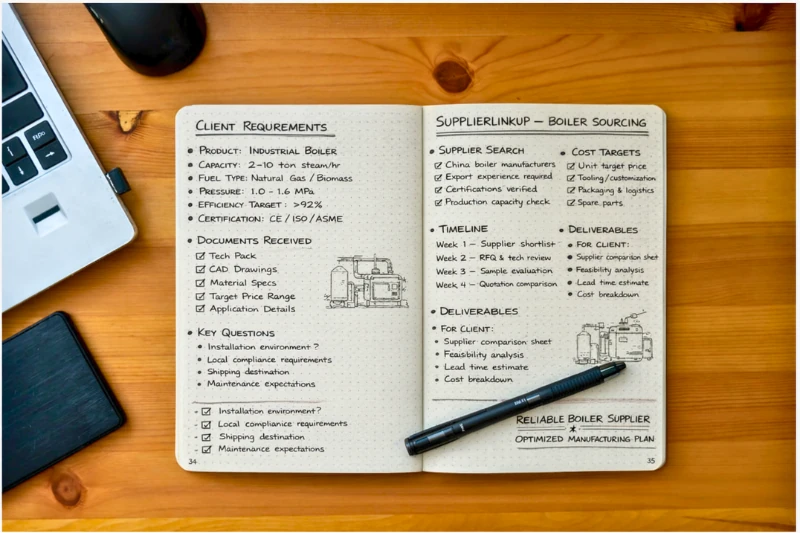 CLIENT REQUREMENTS
PRODUCT: INDUSTRIAL BOILER
CAPACITY: 2-10 ton steam/hr
FUEL TYPE: Natural Gas / Biomass
PRESSURE: 1.0 - 1.6 MPa
EFFICIENCY TARGET: >92%
CERTIFICATION: CE / ISO / ASME
DOCUMENTS RECEIVED
Tech Pack
CAD Drawings
Material Specs
Target Price Range
Application Details
KEY QUESTIONS
Installation environment?
Local compliance requirements
Shipping destination
Maintenance expectations
Installation environment?
Local complianice requirements
Shipping destination
Maintenance expectations
34
SUPPLIERLINKUP — BOILER SOURCING
SUPPLIER SEARCH
China boiler manufacturers
Export experience required
Certifications verified
Production capacity check
COST TARGETS
Unit target price
Tooling/customization
Packaging & logistics
Spare parts
TIMELINE
Week 1 — Supplier shortlist
Week 2 — RFQ & tech review
Week 3 — Sample evaluation
Week 4 — Quotation comparison
DELIVERABLES
FOR CLIENT:
Supplier comparison shet
Feasibility analysis
Lead time estimate
Cost breakdown
DELIVERABLES
FOR CLIENT:
Supplier comparison sheet
Feaisbility analysis
Lead time estimate
Cost breakdown
RELIABLE BOILER SUPPLIER
*
OPTIMIZED MANUFACTURING PLAN
35